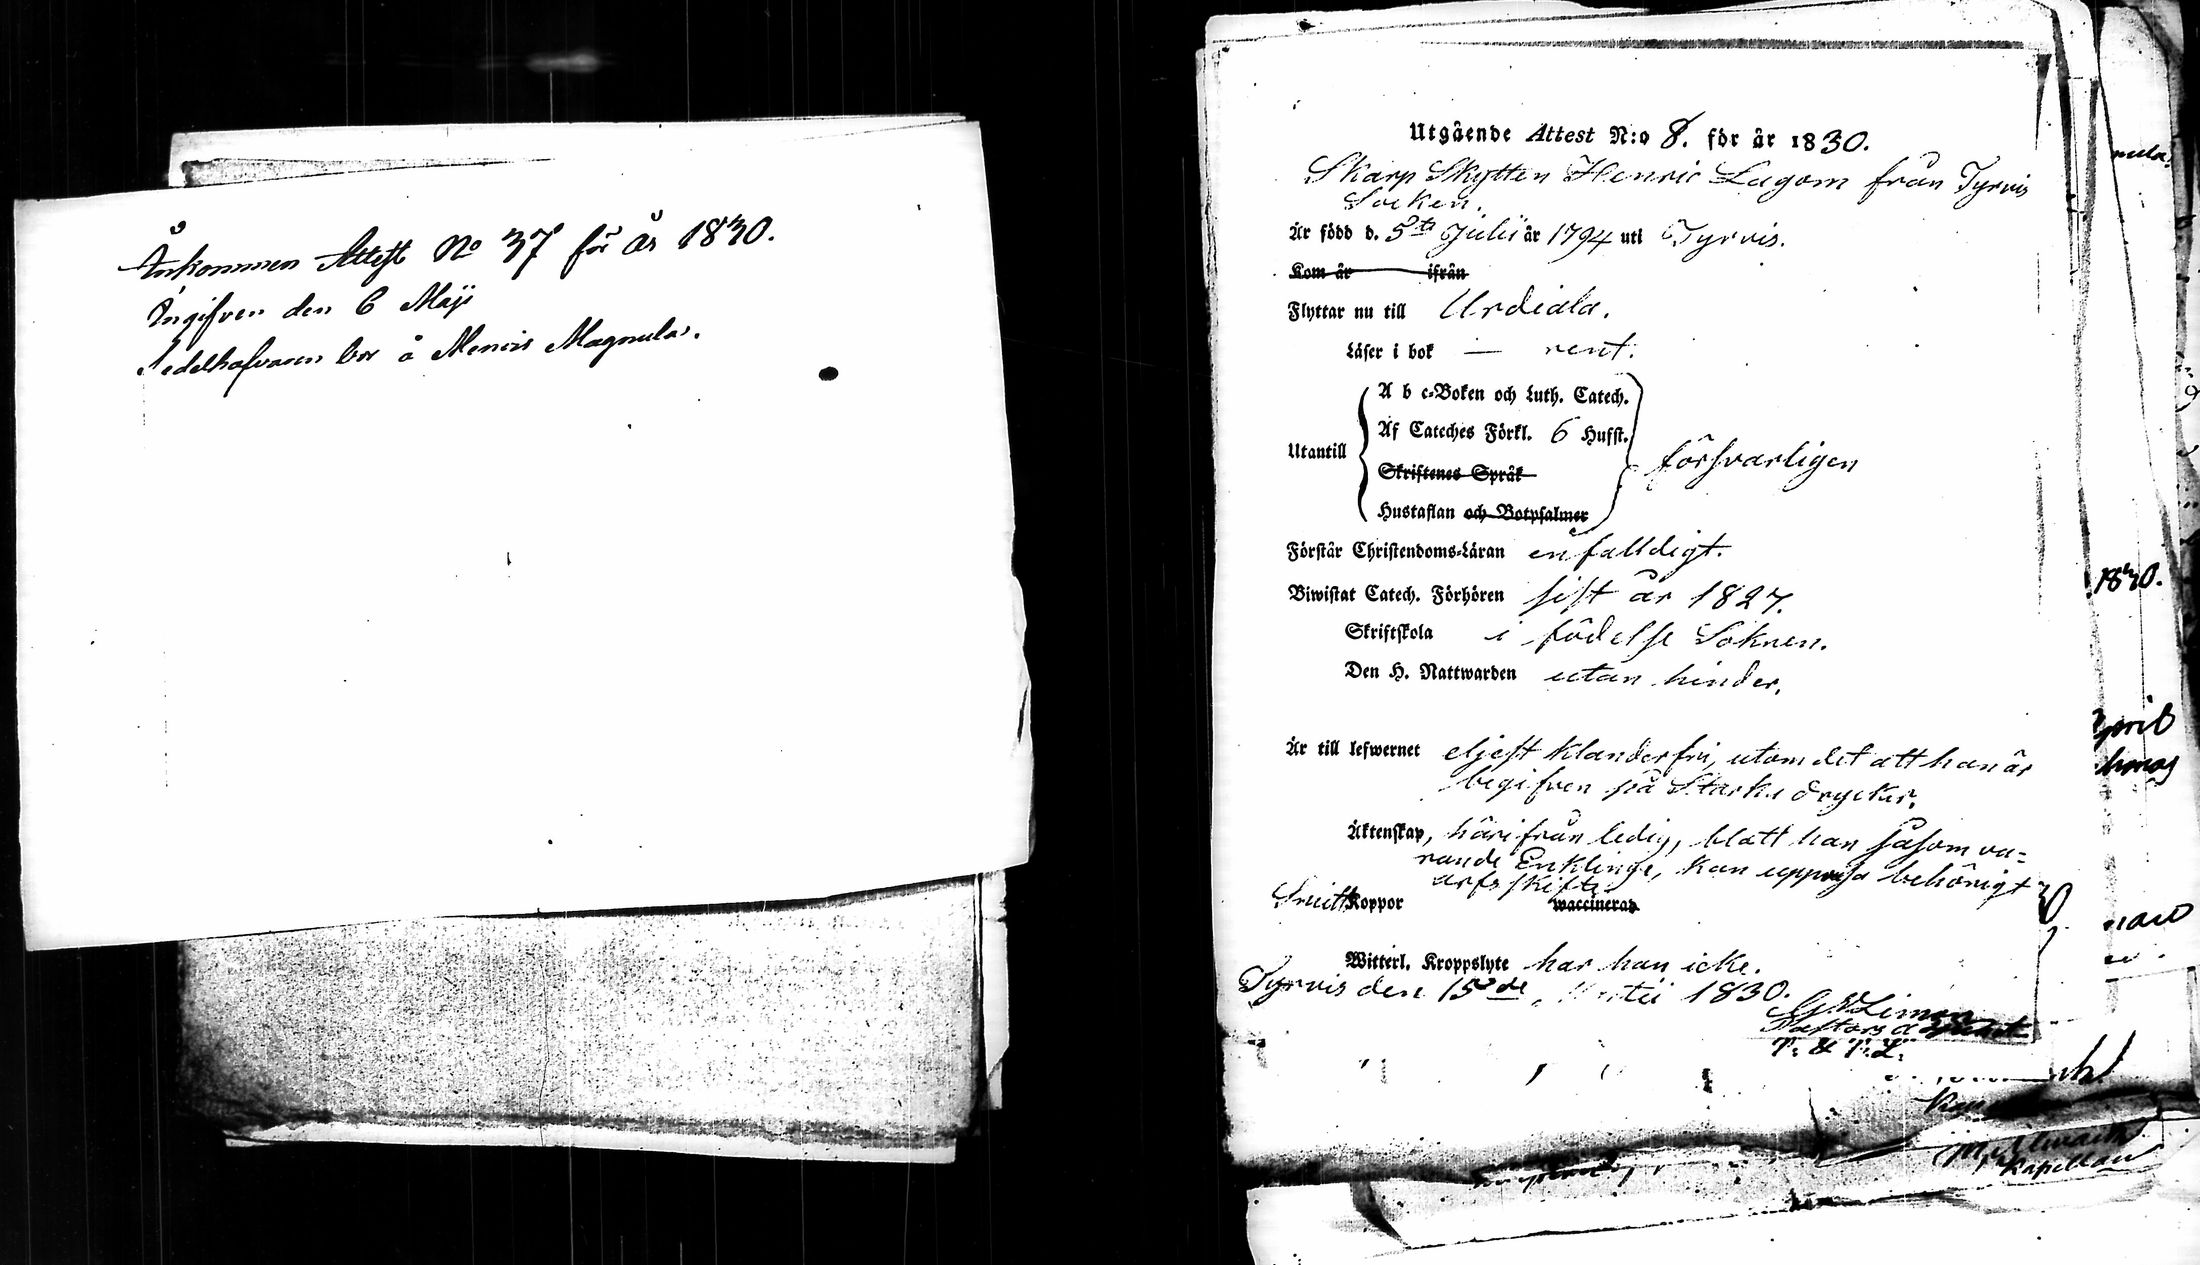 Ånkommen Attest No 37 för år 1830.
Ingifven den 6 Maji
edelhafvaren bor å Menois Magnula.
Utgående Attest N:o 8. för år 1830.
Skarp Skytten Henric Lagom från Tyrvis
Socken.
Är född d. 5te Julii år 1794 uti Tyrvis.
Kom år ifrån
Flyttar nu till Urdiala.
Läser i bok — rent.
A b c-Boken och Luth. Catech.
Af Cateches Förkl. 6 Hufst.
Utantill försvarligen
Skriftenes Språk
Hustaflan och Botpsalmer
Förstår Christendoms-Läran enfalldigt.
Biwistat Catech. Förhören sist år 1827.
Skriftskola i födelse Soknen.
Den H. Nattwarden utan hinder.
Är till lefwernet eljest klanderfri, utom det att han är
begifven på Starka drycker.
Äktenskap, härifrån ledig, blott han såsom va=
rande Enkling, kan uppvisa behörigt
arfs skifte.
Koppor waccinerad
Witterl. Kroppslyte har han icke.
Tyrvis den 15de Martii 1830.
G. Limon
Pastors adjunct
T. & T. L.
1830.
Kapellan